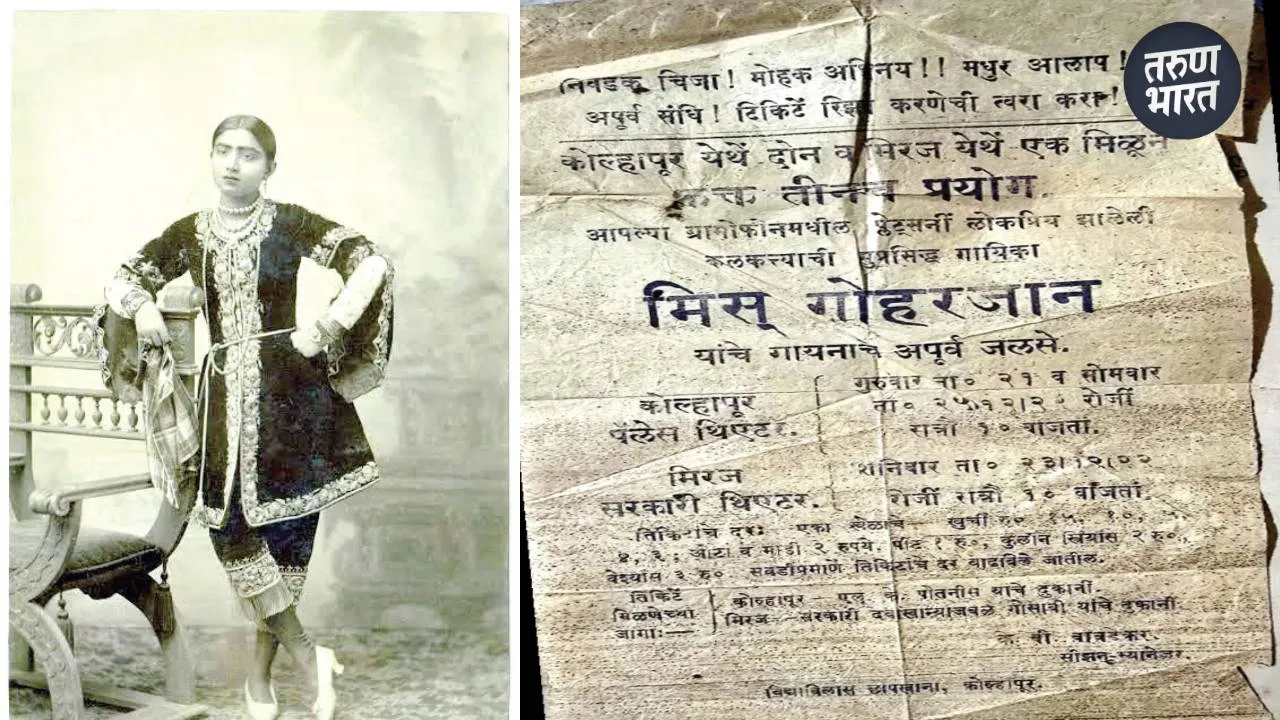 निवडक चिजा! मोहक अभिनय!! मधुर आलाप!
अपूर्व संधि! टिकिटें रिझर्व करणेची त्वरा करा!
कोल्हापूर येथें दोन व मिरज येथें एक मिळून
फक्त तीनच प्रयोग.
आपल्या ग्रामोफोनमधील प्लेट्सनीं लोकप्रिय झालेली
कलकत्त्याची सुप्रसिद्ध गायिका
मिस् गोहरजान
यांचे गायनाचे अपूर्व जलसे.
कोल्हापूर
पॅलेस थिएटर.
गुरुवार ता० २१ व सोमवार
ता० रोजीं
रात्रौ १० वाजतां.
मिरज
सरकारी थिएटर.
शनिवार ता०
रोजीं रात्रौ १० वाजतां.
तिकिटांचे दर: एका खेळाचे खुर्ची रु० १५, १०,
४, ३; व माडी २ रुपये, पीट १ रु०, कुलीन स्त्रियांस २ रु०,
वेश्यांस ३ रु० सवडीप्रमाणे तिकिटांचे दर वाढविले जातील.
तिकिटें
मिळणेच्या
जागा:—
कोल्हापूर — एल्. के. पोतनीस यांचे दुकानीं.
मिरज — सरकारी दवाखान्याजवळ गोसावी यांचे दुकानीं
सीझन् म्यानेजर.
विद्याविलास छापखाना, कोल्हापूर.
तरुण
भारत